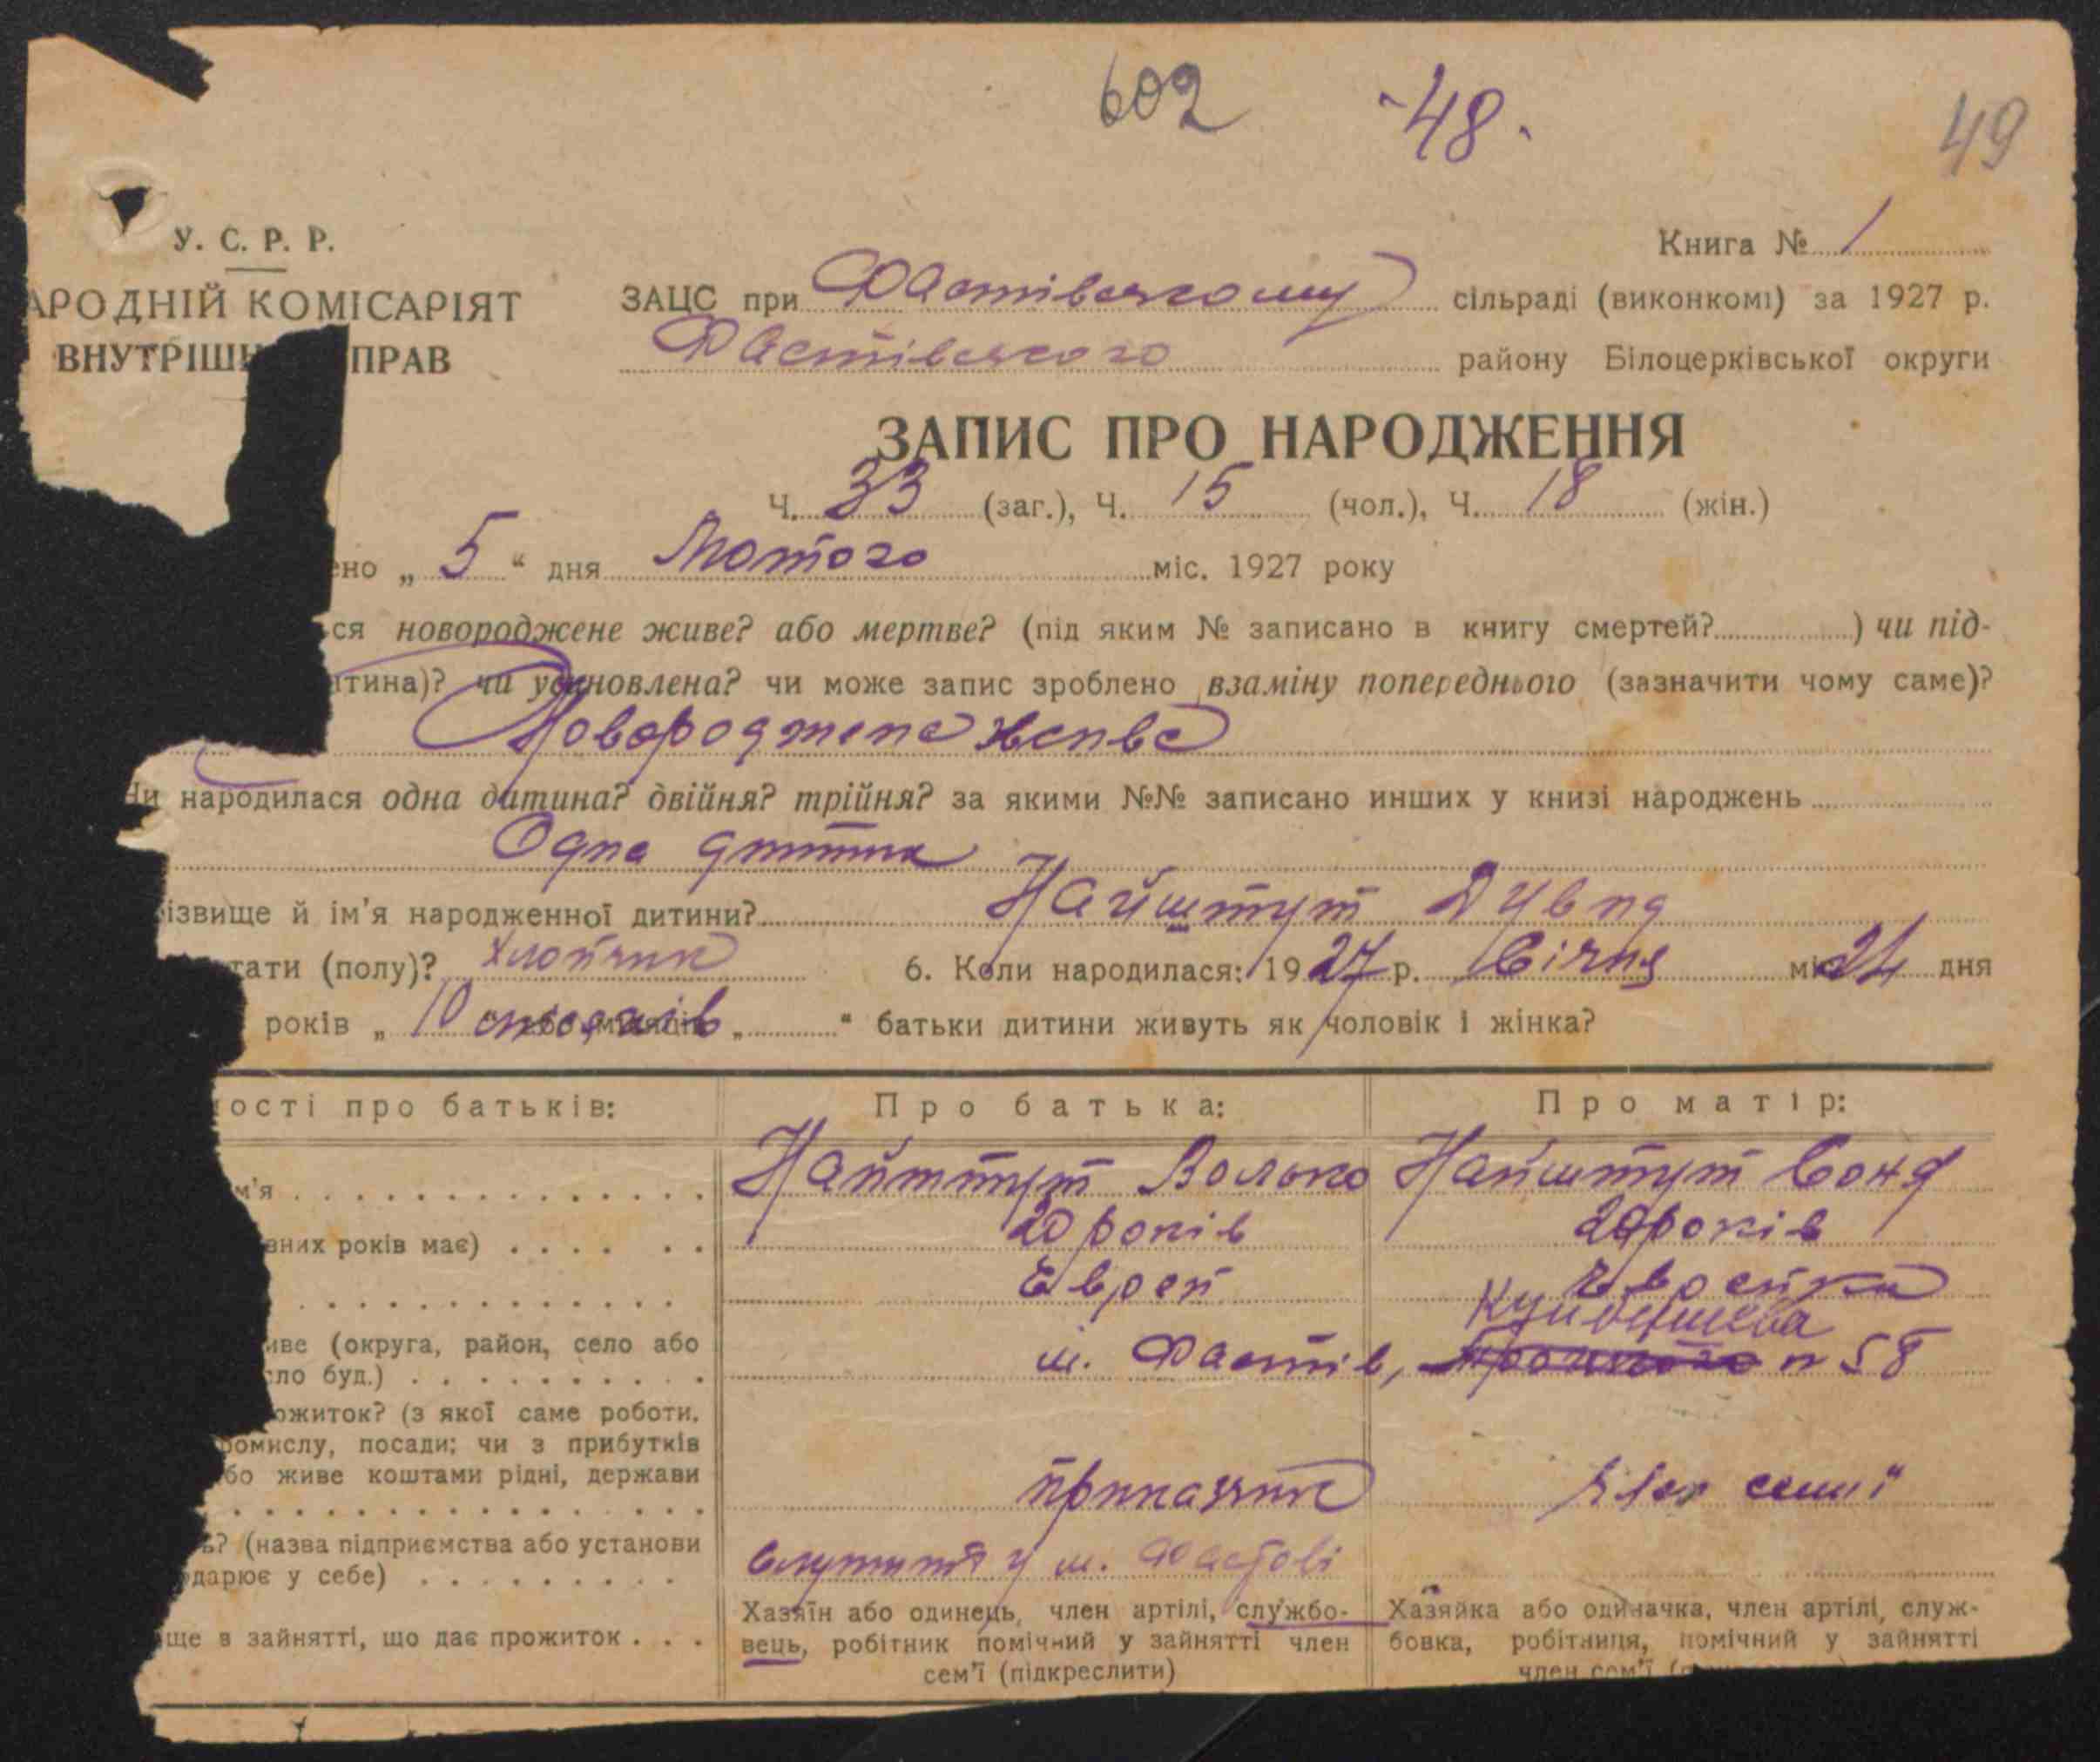 602 -48- 49
У. С. Р. Р.
АРОДНІЙ КОМІСАРІЯТ
ВНУТРІШН ПРАВ
Книга № 1
ЗАЦС при Фастівському сільраді (виконкомі) за 1927 р.
Фастівського району Білоцерківської округи
ЗАПИС ПРО НАРОДЖЕННЯ
Ч. 33 (заг.), Ч. 15 (чол.), Ч. 18 (жін.)
ено „ 5 “ дня Лютого міс. 1927 року
ся новороджене живе? або мертве? (під яким № записано в книгу смертей? ) чи під-
итина)? чи усиновлена? чи може запис зроблено взаміну попереднього (зазначити чому саме)?
Новороджене живе
Чи народилася одна дитина? двійня? трійня? за якими №№ записано инших у книзі народжень
Одна дитина
ізвище й ім’я народженної дитини? Найштут Давид
тати (полу)? хлопчик 6. Коли народилася: 1927 р. Січня міс 24 дня
років „ 10 місяців „ “ батьки дитини живуть як чоловік і жінка?
ості про батьків: Про батька: Про матір:
м’я Найштут Волько Найштут Соня
аних років має) 20 років 20 років
Еврей Еврейка
Куйбишева
иве (округа, район, село або
ло буд.) м. Фастів, Троцького n 58
ожиток? (з якої саме роботи,
ромислу, посади; чи з прибутків
бо живе коштами рідні, держави
приказчик Член семиї
ь? (назва підприємства або установи
дарює у себе) Служить у м. Фастові
ще в зайнятті, що дає прожиток
Хазяїн або одинець, член артілі, службо-
вець, робітник помічний у зайнятті член
сем’ї (підкреслити)
Хазяйка або одиначка, член артілі, служ-
бовка, робітниця, помічний у зайнятті
член сем’ї